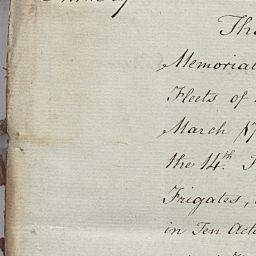 Tha
Memorial
Fleets of
March 17
the 14th
Frigates,
in Ten Acti